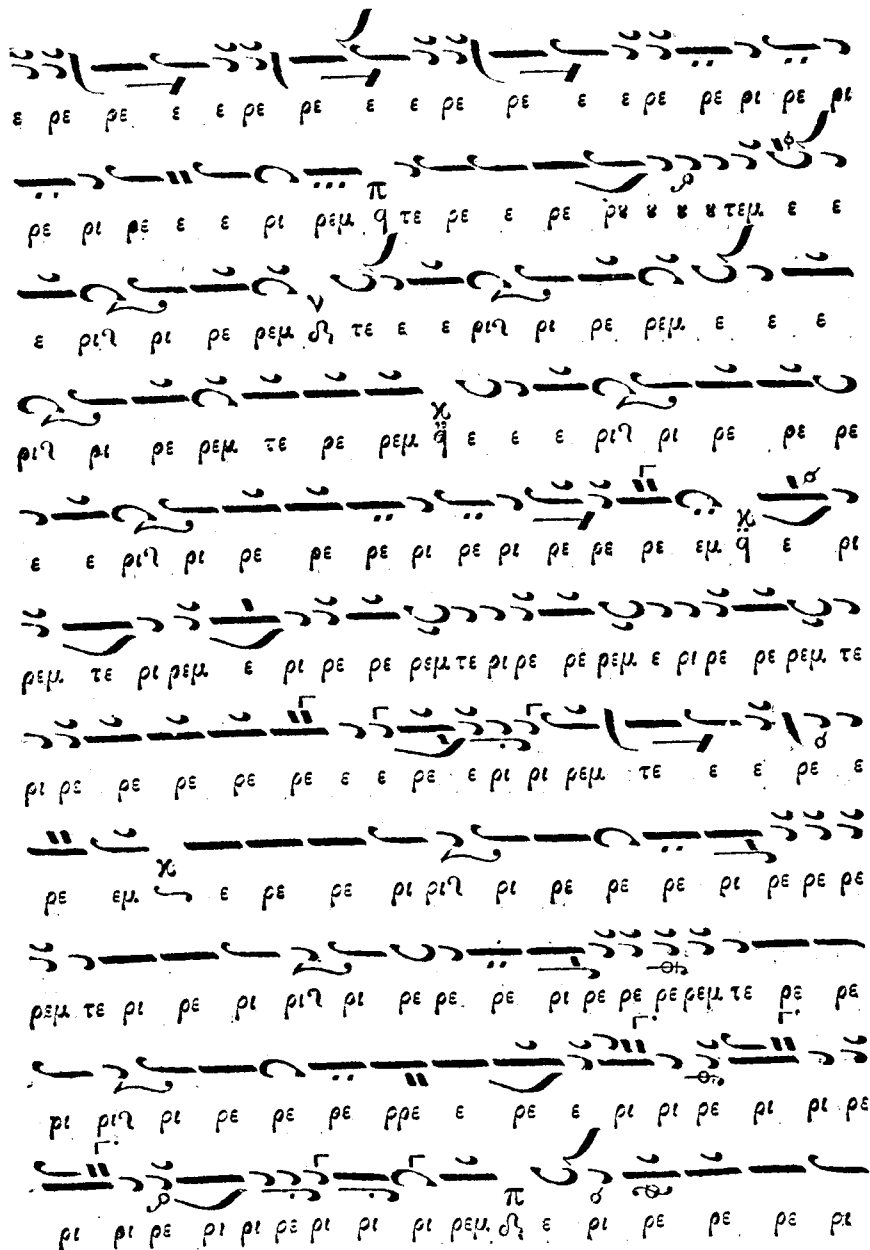 ε ρε ρε ε ε ρε ρε ε ε ρε ρε ε ε ρε ρε ρι ρε ρι
ρε ρι ρε ε ε ρι ρεμ π q τε ρε ε ρε ρȣ ȣ ȣ ȣ τεμ ε ε
ε ριρ ρι ρε ρεμ ν τε ε ε ριρ ρι ρε ρεμ ε ε ε
ριρ ρι ρε ρεμ τε ρε ρεμ ϰ q ε ε ε ριρ ρι ρε ρε ρε
ε ε ριρ ρι ρε ρε ρε ρι ρε ρι ρε ρε ρε εμ ϰ q ε ρι
ρεμ τε ρι ρεμ ε ρι ρε ρε ρεμ τε ρι ρε ρε ρεμ ε ρι ρε ρε ρεμ τε
ρι ρε ρε ρε ρε ρε ε ε ρε ε ρι ρι ρεμ τε ε ε ρε ε
ρε εμ ϰ ε ρε ρε ρι ριρ ρι ρε ρε ρε ρι ρε ρε ρε
ρεμ τε ρι ρε ρι ριρ ρι ρε ρε ρε ρι ρε ρε ρε ρεμ τε ρε ρε
ρι ριρ ρι ρε ρε ρε ρρε ε ρε ε ρι ρι ρε ρι ρι ρε
ρι ρι ρε ρι ρι ρε ρι ρι ρι ρεμ π ε ρι ρε ρε ρε ρι